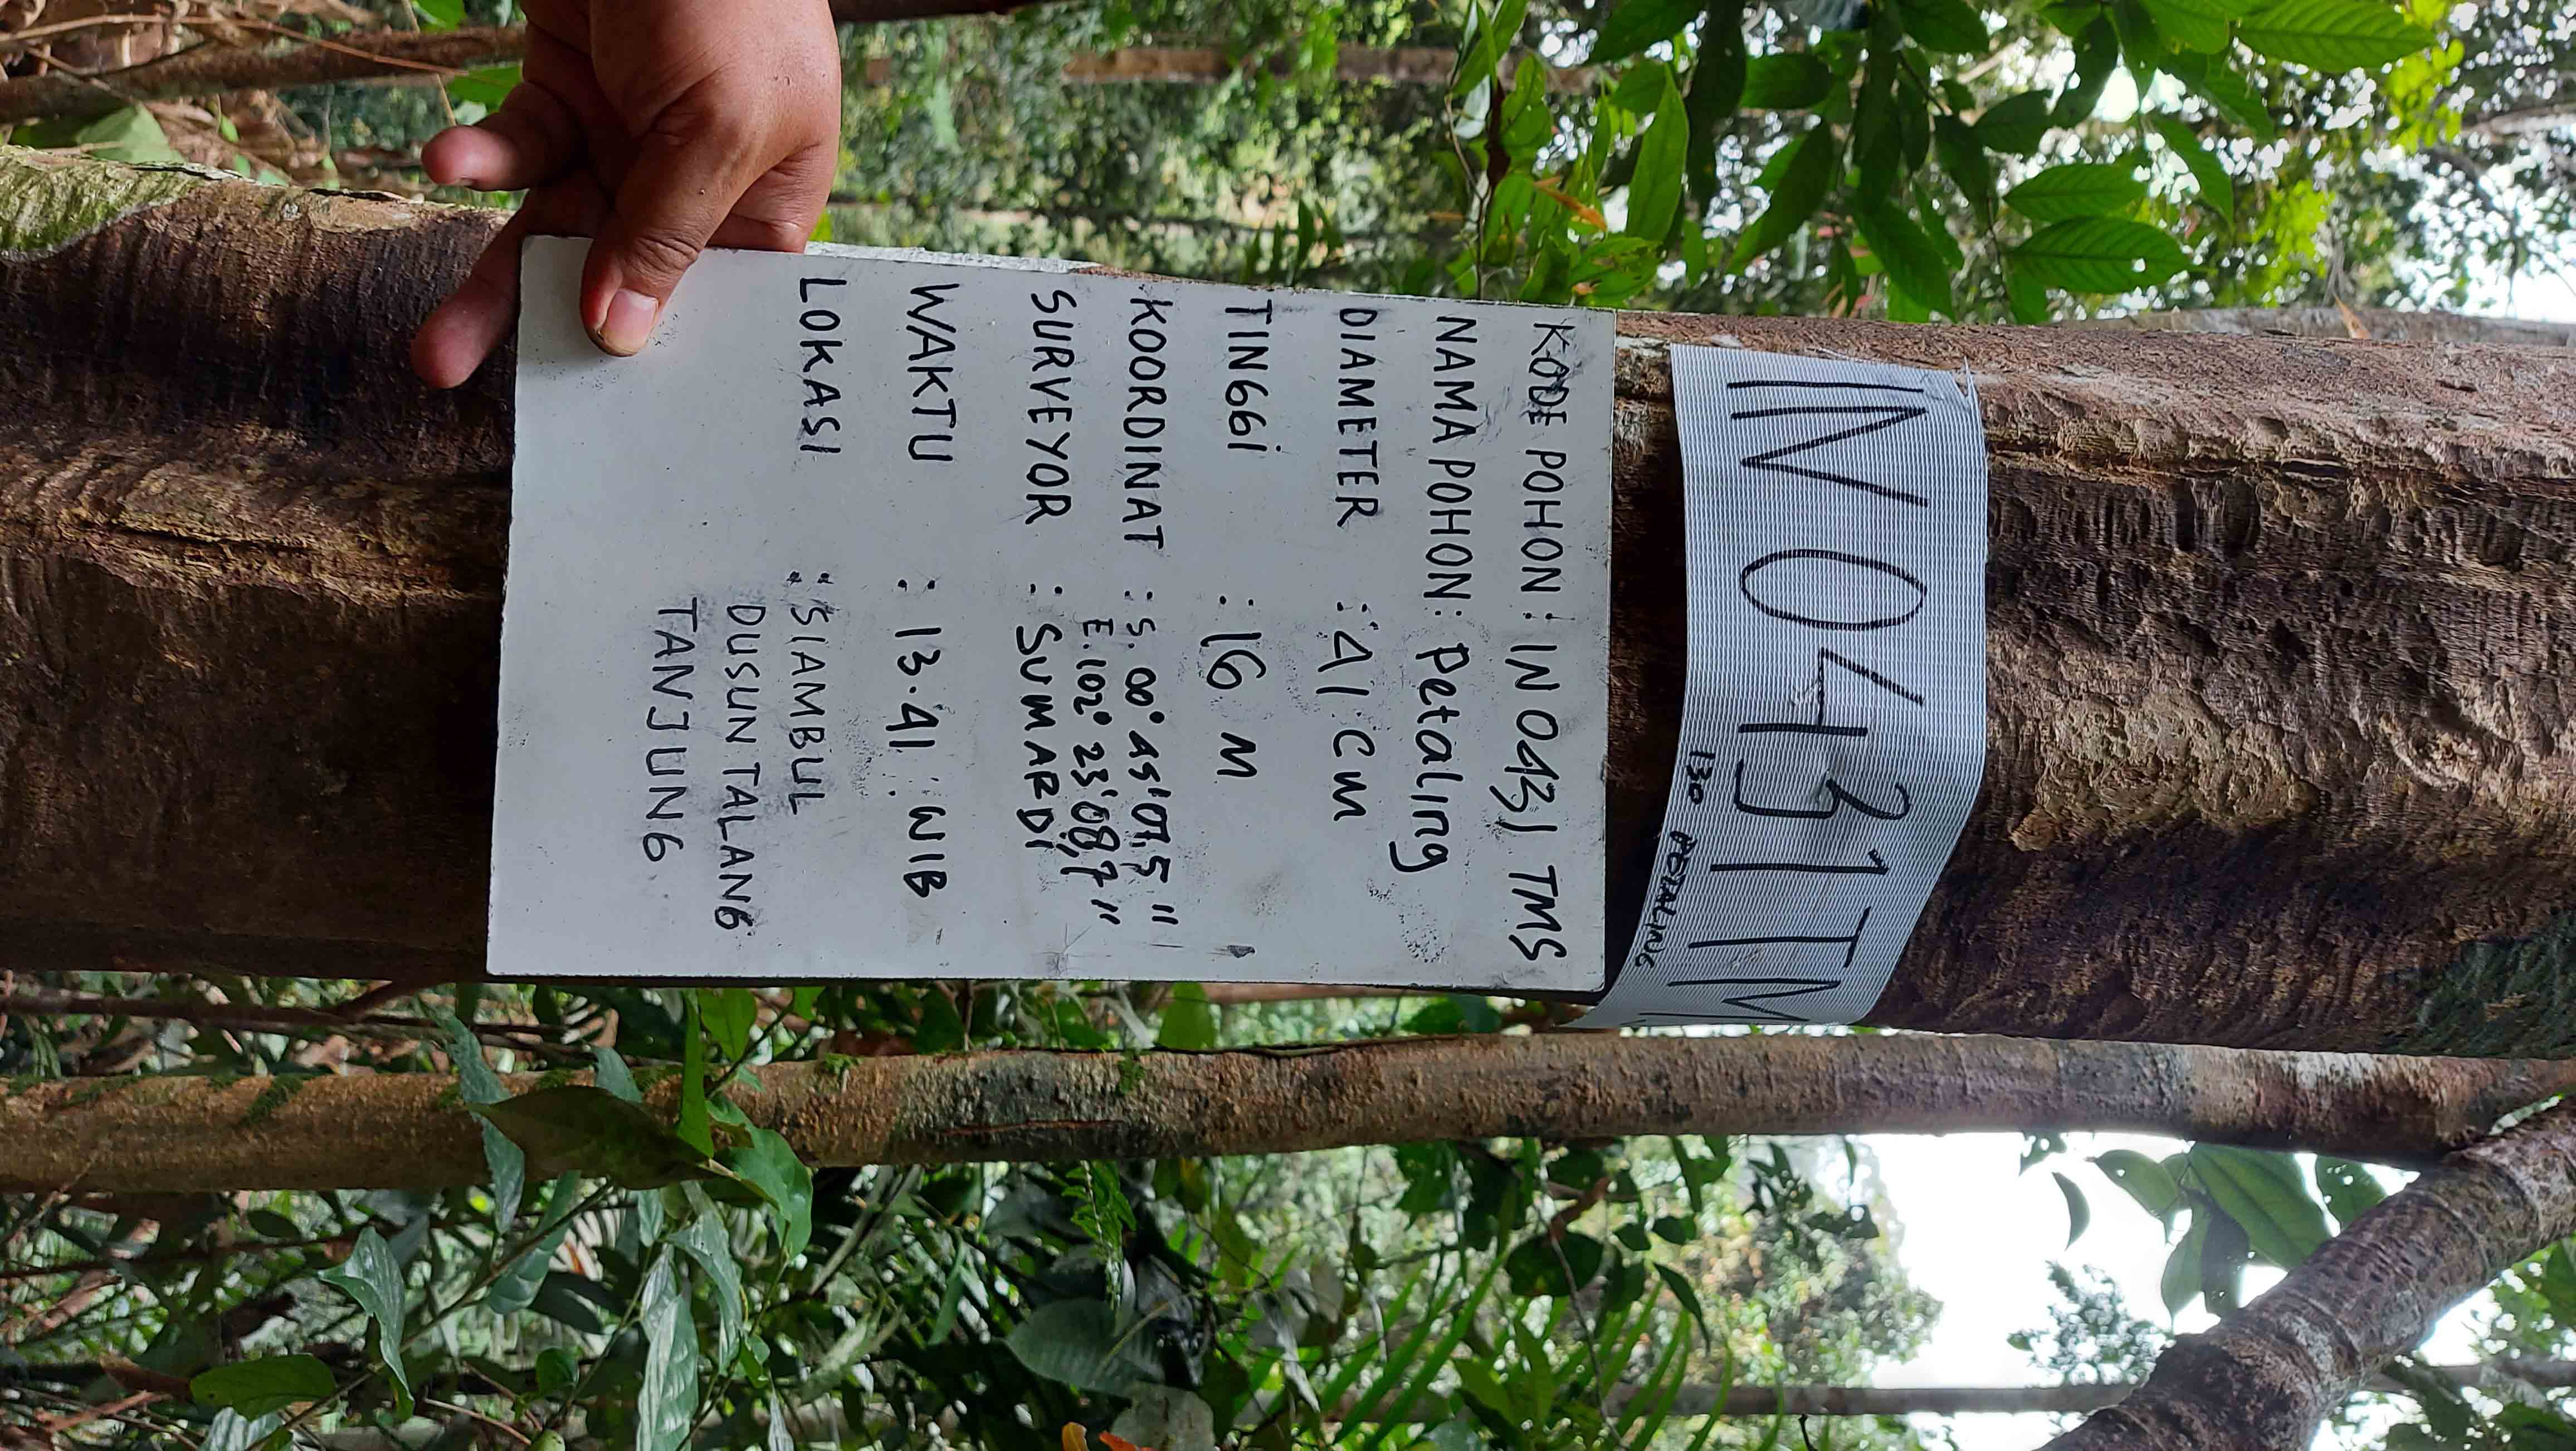 IN 0431 TM
130 PETALING
KODE POHON : IN 0431 TMS
NAMA POHON : Petaling
DIAMETER : 41 CM
TINGGi : 16 M
KOORDINAT : S. 00° 45' 07,5 "
E. 102° 23' 08,7 "
SURVEYOR : SUMARDi
WAKTU : 13.41 WIB
LOKASI : SIAMBUL
DUSUN TALANG
TANJUNG